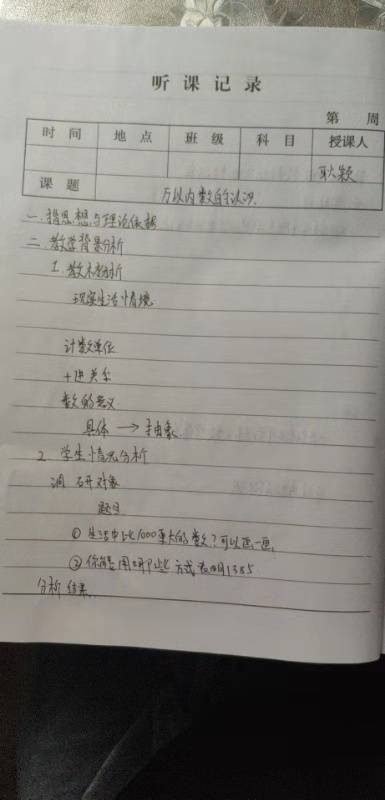 听课记录
第 周
时间 地点 班级 科目 授课人
耿颖
课题 万以内数的认识
一. 指思想与理论依据
二. 教学背景分析
1. 教材分析
现实生活情境
计数单位
十进关系
数的意义
具体 → 抽象
2. 学生情况分析
调研对象
题目
① 生活中比1000更大的数？可以画一画.
② 你能用哪些方式表明1385
分析结果.